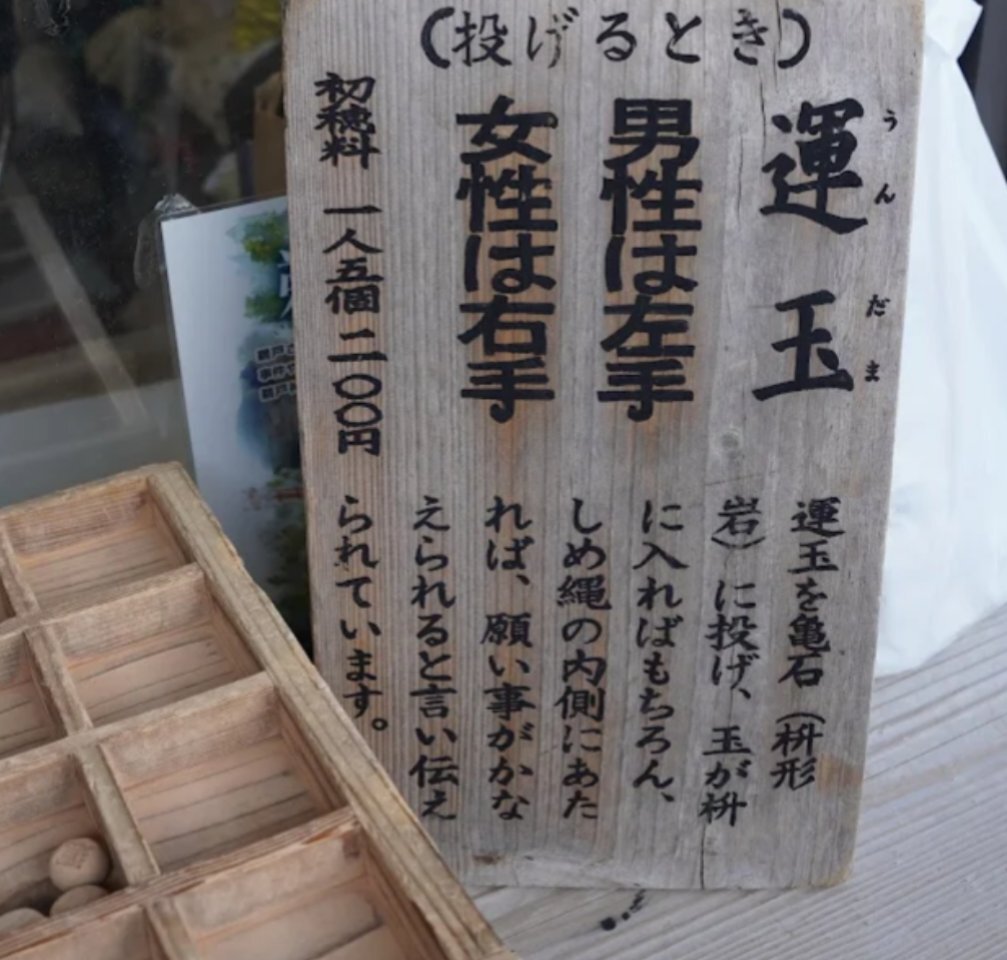 （投げるとき）
運玉
うんだま
男性は左手
女性は右手
初穂料 一人五個 二〇〇円
運玉を亀石（枡形
岩）に投げ、玉が枡
に入ればもちろん、
しめ縄の内側にあた
れば、願い事がかな
えられると言い伝え
られています。